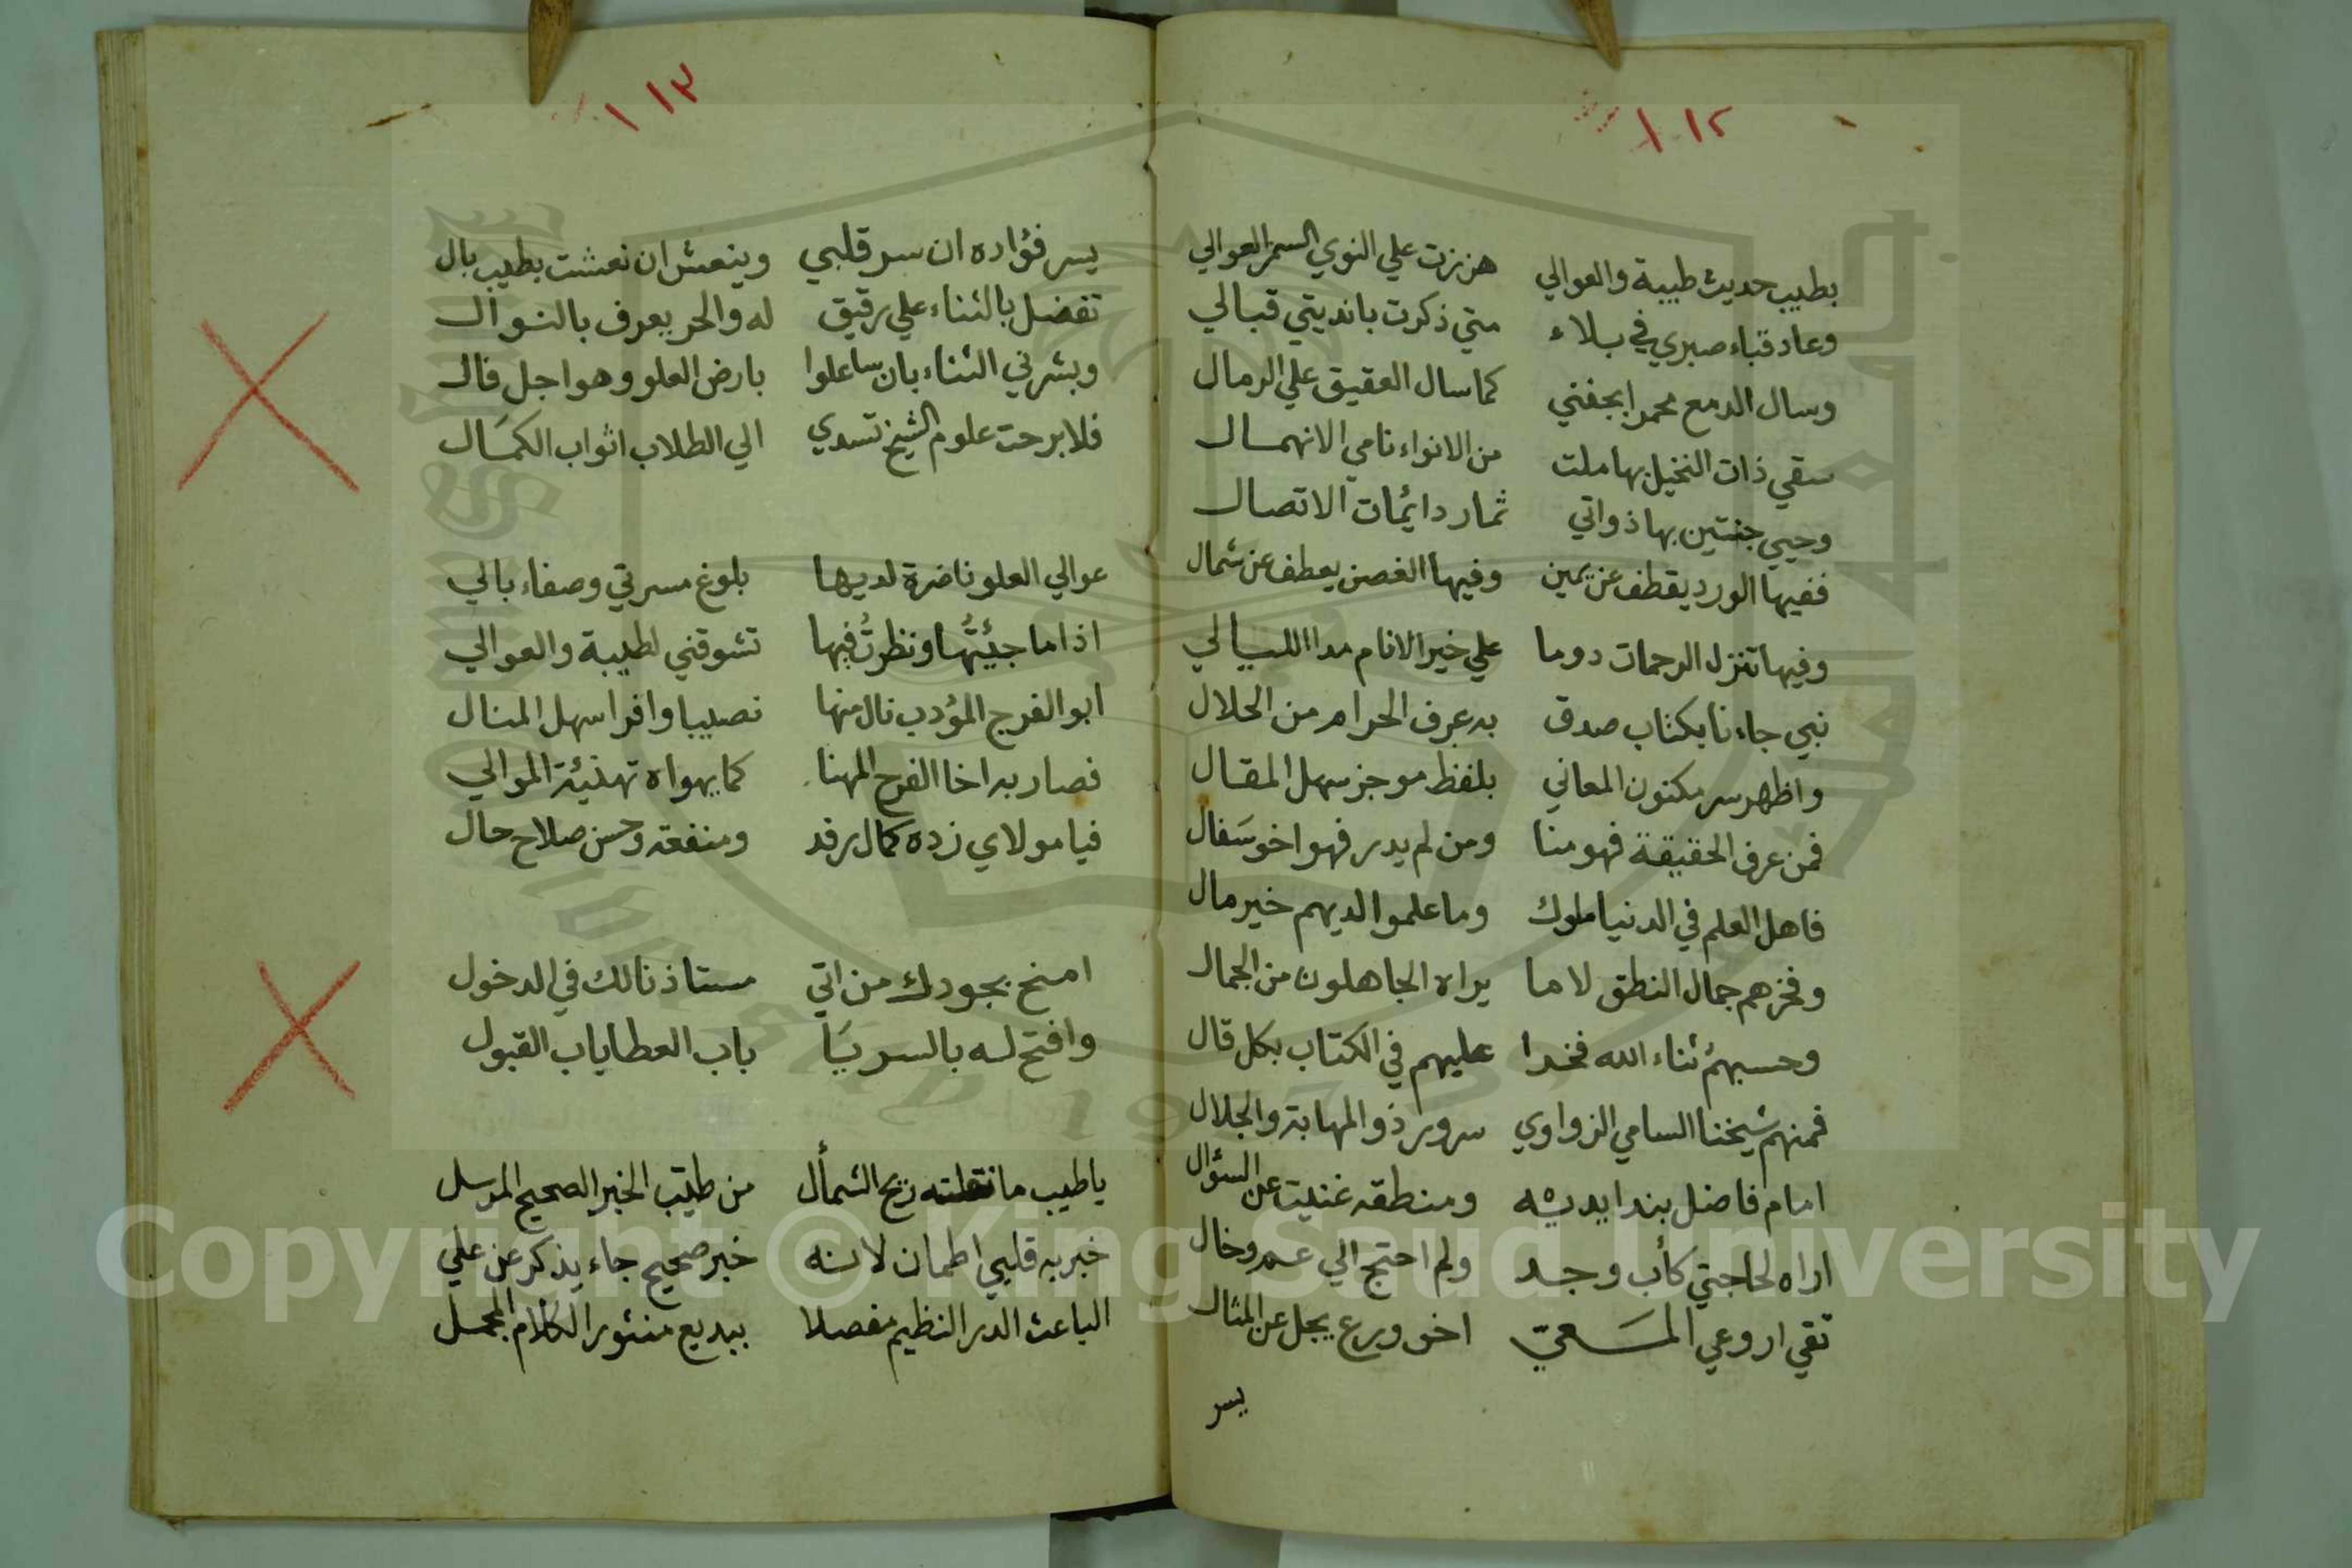 ١١٢
بطيب حديث طيبة والعوالي هززت علي النوي السمر العوالي
وعاد قباء صبري في بلاء متي ذكرت بانديتي قبالي
وسال الدمع محمرا بجفني كما سال العقيق علي الرمال
سقي ذات النخيل بها ملت من الانواء نامي الانهمال
وحيي جنتين بها ذواتي ثمار دائمات الاتصال
ففيها الورد يقطف عن يمين وفيها الغصن يعطف عن شمال
وفيها تنزل الرحمات دوما علي خير الانام مدا الليالي
نبي جاءنا بكتاب صدق به عرف الحرام من الحلال
واظهر سر مكنون المعاني بلفظ موجز سهل المقال
فمن عرف الحقيقة فهو منا ومن لم يدر فهو اخو سفال
فاهل العلم في الدنيا ملوك وما علموا لديهم خير مال
وفخرهم جمال النطق لا ما يراه الجاهلون من الجمال
وحسبهم ثناء الله فخرا عليهم في الكتاب بكل قال
فمنهم شيخنا السامي الزواوي سرور ذو المهابة والجلال
امام فاضل بندا يديه ومنطقه غنيت عن السؤال
اراه لحاجتي كأب وجد ولم احتج الي عم وخال
تقي اروعي المسعيّ اخو ورع يجل عن المثال
يسر
١١٣
يسر فؤاده ان سر قلبي وينعش ان نعشت بطيب بال
تفضل بالثناء علي رقيق له والحر يعرف بالنوال
وبشرني الثناء بان ساعلوا بارض العلو وهو اجل فال
فلا برحت علوم الشيخ تسدي الي الطلاب اثواب الكمال
عوالي العلو ناضرة لديها بلوغ مسرتي وصفاء بالي
اذا ما جئتُها ونظرتُ فيها تشوقني لطيبة والعوالي
ابو الفرج المؤدب نال منها نصيبا وافرا سهل المنال
فصار به اخا الفرح المهنا كما يهواه تهنيئة الموالي
فيا مولاي زده كمال رفد ومنفعة وحسن صلاح حال
امنح بجودك من اتي مستاذنا لك في الدخول
وافتح له بالسر يا باب العطايا باب القبول
يا طيب ما نقلته ريح الشمأل من طيب الخبر الصحيح المرسل
خبر به قلبي اطمان لانه خبر صحيح جاء يذكر عن علي
الباعث الدر النظيم مفصلا ببديع منثور الكلام المجمل
Copyright © King Saud University